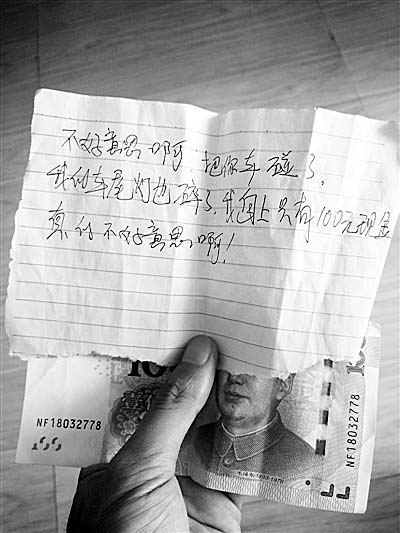 不好意思啊,把你车碰了,
我的车尾灯也碎了,我身上只有100元现金
真的不好意思啊!
100
NF18032778
100
NF18032778